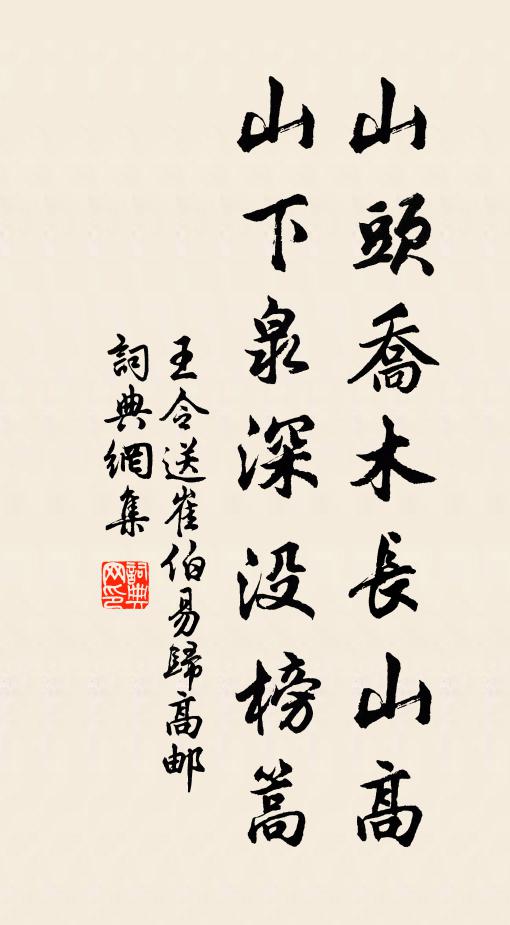 山頭喬木長山高
山下泉深没榜篙
王令送崔伯易歸高邮
詞典網集
詞典网印